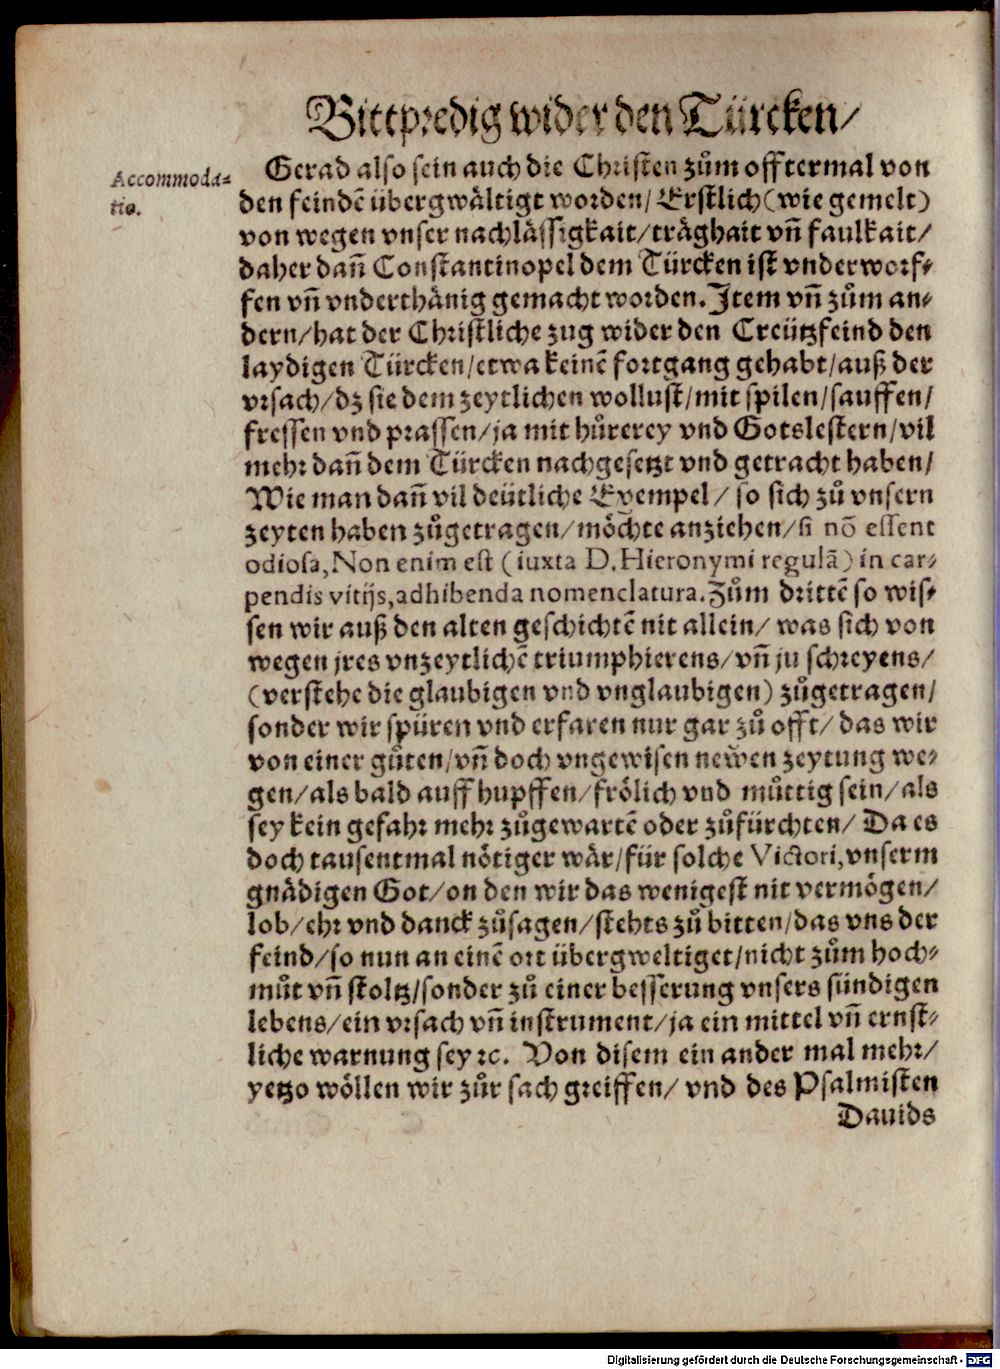 Bittpredig wider den Türcken/
Accommoda-
tio.
Gerad also sein auch die Christen zům offtermal von
den feindē übergwältigt worden/ Erstlich (wie gemelt)
von wegen vnser nachlässigkait/ träghait vñ faulkait/
daher dañ Constantinopel dem Türcken ist vnderworf-
fen vñ vnderthänig gemacht worden. Item vñ zům an-
dern/ hat der Christliche zug wider den Creützfeind den
laydigen Türcken/ etwa keinē fortgang gehabt/ auß der
vrsach/ dz sie dem zeytlichen wollust/ mit spilen/ sauffen/
fressen vnd prassen/ ja mit hůrerey vnd Gotslestern/ vil
mehr dañ dem Türcken nachgesetzt vnd getracht haben/
Wie man dañ vil deütliche Exempel/ so sich zů vnsern
zeyten haben zůgetragen/ möchte anziehen/ si nō essent
odiosa, Non enim est (iuxta D. Hieronymi regulā) in car-
pendis vitijs, adhibenda nomenclatura. Zům drittē so wis-
sen wir auß den alten geschichtē nit allein/ was sich von
wegen jres vnzeytlichē triumphierens/ vñ ju schreyens/
(verstehe die glaubigen vnd vnglaubigen) zůgetragen/
sonder wir spüren vnd erfaren nur gar zů offt/ das wir
von einer gůten/ vñ doch vngewisen newen zeytung we-
gen/ als bald auff hupffen/ frölich vnd můttig sein/ als
sey kein gefahr mehr zůgewartē oder zůfürchten/ Da es
doch tausentmal nötiger wär/ für solche Victori, vnserm
gnädigen Got/ on den wir das wenigest nit vermögen/
lob/ ehr vnd danck zůsagen/ stehts zů bitten/ das vns der
feind/ so nun an einē ort übergweltiget/ nicht zům hoch-
můt vñ stoltz/ sonder zů einer besserung vnsers sündigen
lebens/ ein vrsach vñ instrument/ ja ein mittel vñ ernst-
liche warnung sey ꝛc. Von disem ein ander mal mehr/
yetzo wöllen wir zůr sach greiffen/ vnd des Psalmisten
Dauids
Digitalisierung gefördert durch die Deutsche Forschungsgemeinschaft - DFG